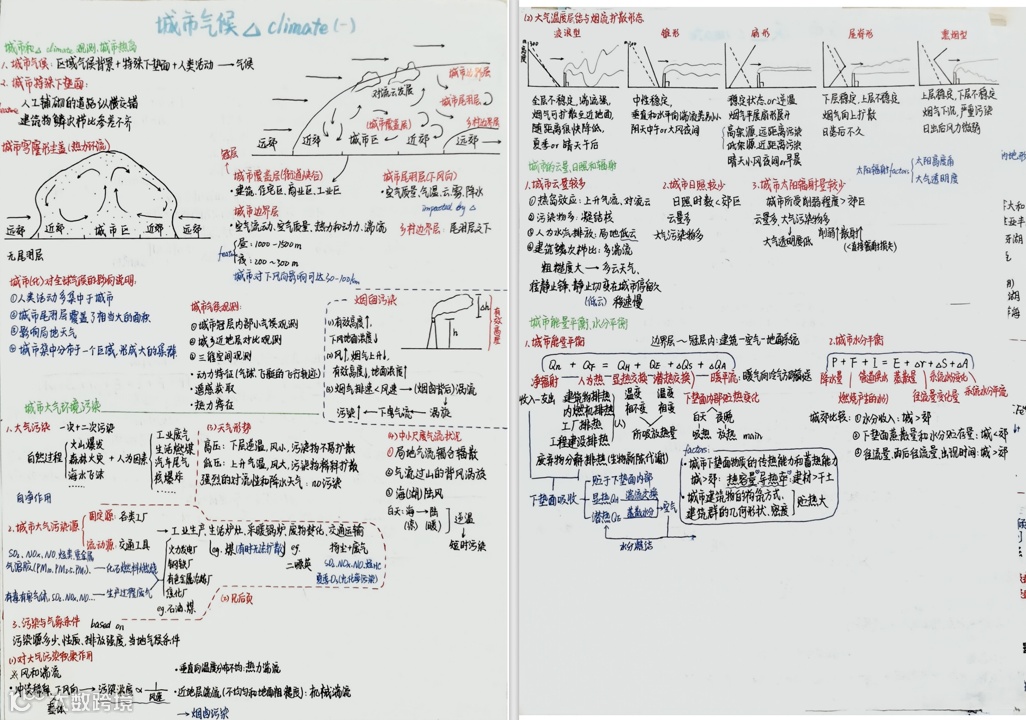 城市气候 △ climate (一)
城市和△ climate, 观测, 城市热岛
1. 城市气候: 区域气候背景+特殊下垫面+人类活动 → 气候
2. 城市特殊下垫面:
人工铺砌的道路纵横交错
建筑物鳞次栉比参差不齐
城市穹窿形尘盖 (热力环流)
远郊 近郊 城市区 近郊 远郊
无尾羽层
对流云发展
城市边界层
城市尾羽层
(城市覆盖层)
乡村边界层
远郊 近郊 城市区 近郊 远郊
冠层
城市覆盖层 (街道峡谷)
• 建筑、住宅区、商业区、工业区
城市尾羽层 (下风向)
• 空气质量、气温、云雾、降水
impacted by △
城市边界层
• 空气流动、空气质量、热力和动力、湍流
乡村边界层: 尾羽层之下
昼: 1000~1500m
夜: 200~300m
城市对下风向影响可达50~100km
城市(化)对全球气候的影响说明:
①人类活动多集中于城市
②城市尾羽层覆盖了相当大的面积
③影响局地天气
④城市集中分布于一个区域, 形成大的集群
城市气候观测:
①城市冠层内部小气候观测
②城乡近地层对比观测
③三维空间观测
• 动力特征(气球、飞艇的飞行轨迹)
• 遥感获取
• 热力特征
烟囱污染
(1)有效高度↑,
下风地面浓度↓
(2)风↑, 烟气上升↓,
有效高度↓, 地面浓度↑
(3)烟气排速<风速 → (烟囱背后)涡流
污染↑ ← 下曳气流 ← 涡旋
Δh
h
有效高度
城市大气环境污染
1. 大气污染 一次+二次污染
自然过程
火山爆发
森林大火
海水飞沫
+ 人为因素
工业废气
生活燃煤
汽车尾气
核爆炸
自净作用
(3)天气形势
高压: 下层逆温, 风小, 污染物不易扩散
低压: 上升气流, 风大, 污染物稀释扩散
强烈的对流性和降水天气: no污染
(4)中小尺度气流状况
①局地气流辐合辐散
②气流过山的背风涡旋
③海(湖)陆风
白天: 海 → 陆
(凉) (暖)
逆温
短时污染
2. 城市大气污染源
固定源: 各类工厂
流动源: 交通工具
→ 工业生产, 生活炉灶, 采暖锅炉, 废物焚化, 交通运输
SO₂、NOx、NO、烃类、重金属
气溶胶(PM₁₀、PM₂.₅、PM₁) ← 化石燃料燃烧
有毒有害气体, SO₂, NOx, NO... ← 生产过程废气
火力发电厂
钢铁厂
有色金属冶炼厂
焦化厂
eg. 石油、煤
eg. 煤(有时无法扩散)
eg.
二噁英
扬尘+废气
(2)见后页
3. 污染与气象条件 based on
污染源多少、性质、排放强度、当地气候条件
(1)对大气污染积聚作用
※风和湍流
• 冲淡稀释, 下风向 → 污染浓度 ∝ 1/风速
整体
• 垂直向温度分布不均: 热力湍流
• 近地层湍流(不均匀和地面粗糙度): 机械湍流
→ 烟囱污染
(2) 大气温度层结与烟流扩散形态
波浪型 锥形 扇形 屋脊形 熏烟型
全层不稳定, 湍流强,
烟气可扩散至近地面,
随距离很快降低,
夏季or晴天午后
中性稳定,
垂直和水平向湍流差别小
阴天中午or大风夜间
稳定状态, or逆温
烟气平展扇形展开
高架源, 远距离污染
低架源, 近距离污染
晴天小风夜间or早晨
下层稳定, 上层不稳定
烟气向上扩散
日落后不久
上层稳定, 下层不稳定
烟气下沉, 严重污染
日出后风力微弱
城市的云量、日照和辐射
太阳辐射factors
太阳高度角
大气透明度
1. 城市云量较多
①热岛效应: 上升气流, 对流云
②污染物多: 凝结核
③人为水汽排放: 局地低云
④建筑鳞次栉比: 多湍流
粗糙度大 → 多云天气,
准静止锋、静止切变在城市停留久
(低云) 移速慢
2. 城市日照较少
日照时数<郊区
云量多
大气污染物多
3. 城市太阳辐射量较少
城市所受削弱程度>郊区
云量多, 大气污染物多
大气透明度低
削弱↑散射↑
(<直接辐射损失)
城市能量平衡, 水分平衡
1. 城市能量平衡 边界层~冠层内: 建筑—空气—地面系统
Qn + QF = QH + QE + ΔQS + ΔQA
净辐射 人为热 显热交换 潜热交换 暖平流: 暖空气向冷气团输送
收入—支出
建筑物排热
内燃机排热
工厂排热
工程建设排热
废弃物分解排热 (生物新陈代谢)
温度 温度
相不变 相变
所吸放热量
下垫面内部贮热变化
白天 夜晚
吸热 放热 main.
下垫面吸收
贮于下垫面内部
显热QH — 湍流交换
潜热QE — 蒸散水分
空气
水分凝结
factors:
• 城市下垫面物质的传热能力和蓄热能力
城>郊: 热容量, 导热率 建材>干土
• 城市建筑物的构筑方式,
建筑群的几何形状、密度
贮热大
2. 城市水分平衡
P + F + I = E + Δr + ΔS + ΔA
降水量 管道供水 蒸散量 系统水平流
燃烧产生的水分 径流量变化量
城郊比较: ①水分收入: 城>郊
②下垫面蒸散量和水分贮存量: 城<郊
③径流量, 雨后径流量, 出现时间: 城>郊
大数跨境